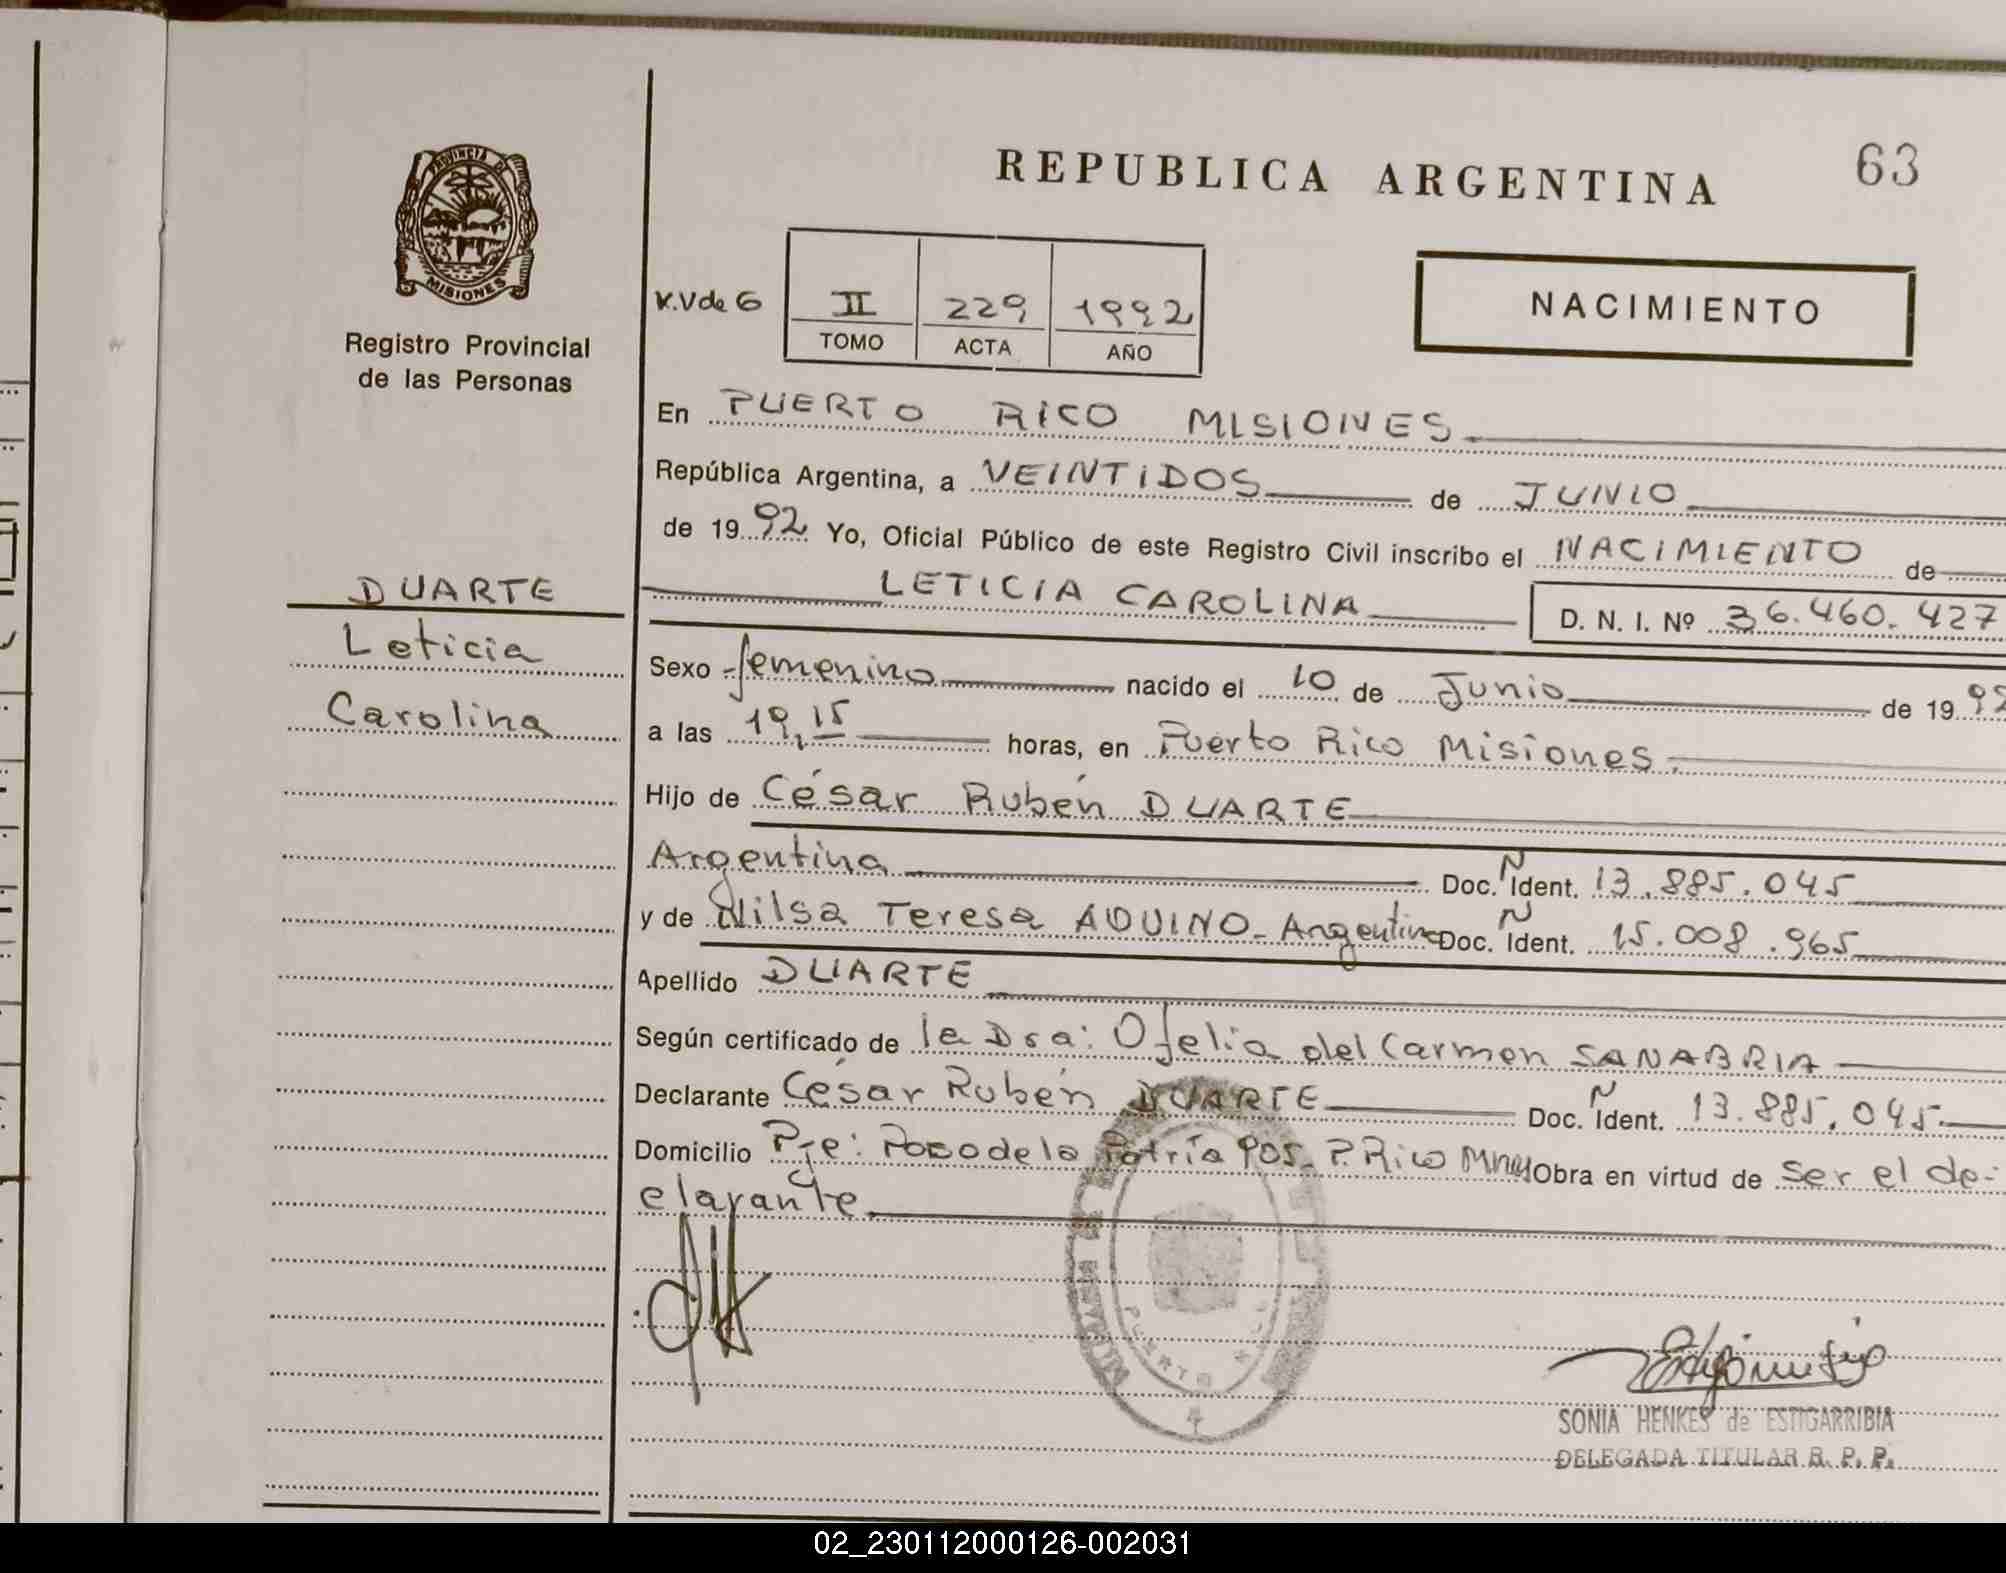 REPUBLICA ARGENTINA
63
PROVINCIA DE
MISIONES
Registro Provincial
de las Personas
K.V de G
II 229 1992
TOMO ACTA AÑO
NACIMIENTO
En PUERTO RICO MISIONES
República Argentina, a VEINTIDOS de JUNIO
de 1992 Yo, Oficial Público de este Registro Civil inscribo el NACIMIENTO de
LETICIA CAROLINA D. N. I. Nº 36.460.427
DUARTE
Leticia
Carolina
Sexo femenino nacido el 10 de Junio de 199
a las 19,15 horas, en Puerto Rico Misiones.
Hijo de César Rubén DUARTE
Argentina Doc. Ñ Ident. 13.885.045
y de Nilsa Teresa AQUINO- Argentina Doc. Ñ Ident. 15.008.965
Apellido DUARTE
Según certificado de la Dra: Ofelia del Carmen SANABRIA
Declarante César Rubén DUARTE Doc. Ñ Ident. 13.885.045
Domicilio Pje: de la Patria P. Rico Obra en virtud de ser el de-
clarante
PUERTO
4
SONIA HENKES de ESTIGARRIBIA
DELEGADA TITULAR R. P. P.
02_230112000126-002031